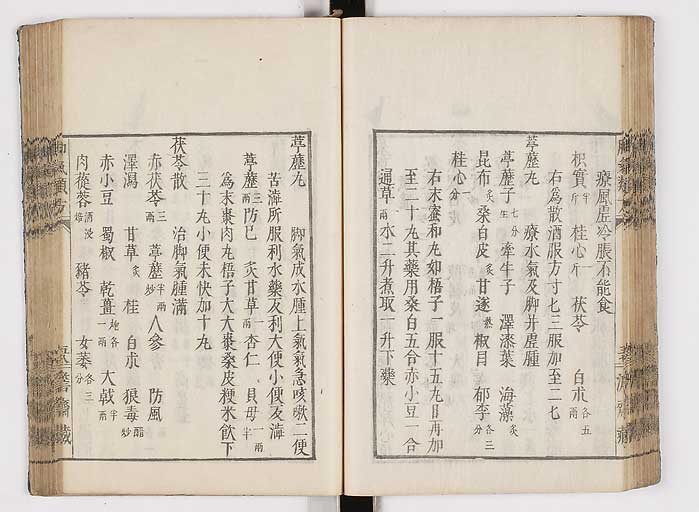 療風虛冷脹不能食
枳實一斤半 桂心一斤 茯苓 白朮各五兩
右爲散酒服方寸七二服加至二七
葶藶丸 療水氣及脚并虛腫
葶藶子七分生 牽牛子 澤漆葉 海藻炙
昆布炙 桑白皮炙 甘遂熬 椒目 郁李各三分
桂心一分
右末蜜和丸如梧子一服十五丸日再加
至二十丸其藥用桑白五合赤小豆一合
通草一兩水二升煮取一升下藥
葶藶丸 脚氣成水腫上氣氣急咳嗽二便
苦澁所服利水藥及利大便小便反澁
葶藶三兩 防已 炙甘草一兩 杏仁 貝母一兩半
爲末棗肉丸梧子大大棗桑皮粳米飲下
三十丸小便未快加十丸
茯苓散 治脚氣腫滿
赤茯苓三兩 葶藶半兩炒 人參 防風
澤瀉 甘草炙 桂 白朮 狼毒醋炒
赤小豆 蜀椒 乾薑地各一兩 大戟半兩
肉蓯蓉酒浸焙 豬苓 女萎各三分